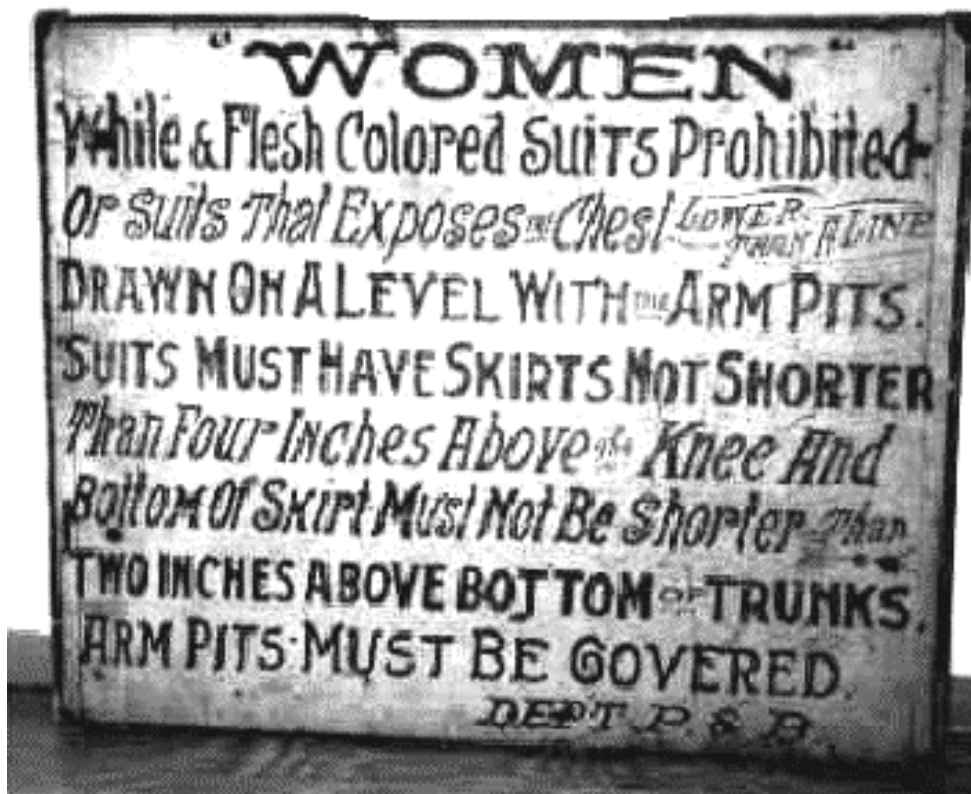 "WOMEN"
White & Flesh Colored Suits Prohibited.
Or Suits That Exposes THE Chest LOWER THAN A LINE
DRAWN ON A LEVEL WITH THE ARM PITS.
SUITS MUST HAVE SKIRTS NOT SHORTER
Than Four Inches Above the Knee And
Bottom Of Skirt Must Not Be Shorter Than
TWO INCHES ABOVE BOTTOM OF TRUNKS.
ARM PITS MUST BE COVERED.
DEPT. P. & B.